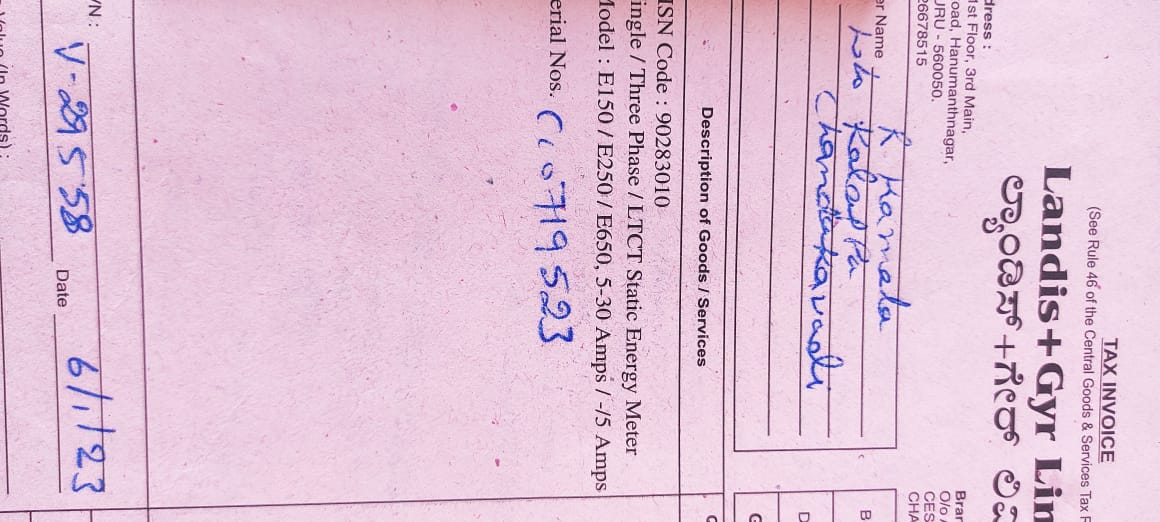 TAX INVOICE
(See Rule 46 of the Central Goods & Services Tax R
Landis+Gyr Lim
ಲ್ಯಾಂಡಿಸ್+ಗೀರ್ ಲಿಮಿ
dress :
1st Floor, 3rd Main,
oad, Hanumanthnagar,
URU - 560050.
26678515
Bran
O/o A
CES
CHA
er Name K Kamala
Kalappa
Chandakavadi
B
D
G
Description of Goods / Services
ISN Code : 90283010
ingle / Three Phase / LTCT Static Energy Meter
Model : E150 / E250 / E650, 5-30 Amps / -/5 Amps
erial Nos. CC0719523
VN : V-29558 Date 6/1/23
Value (In Words) :